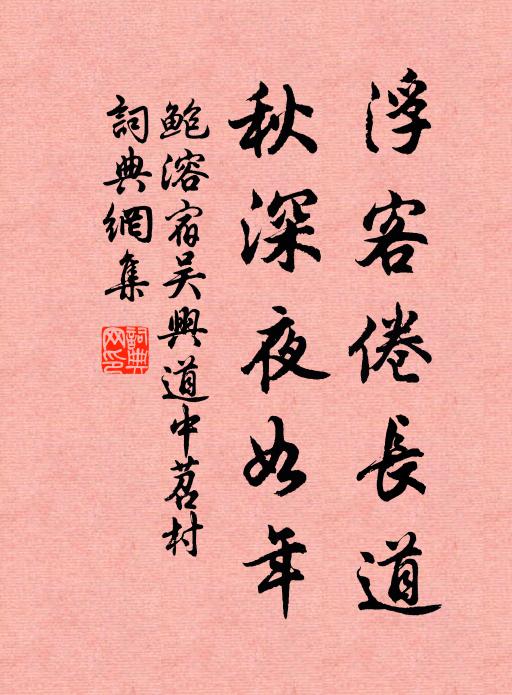 浮客倦長道
秋深夜如年
鮑溶宿吳興道中苕村
詞典網集
詞典網印